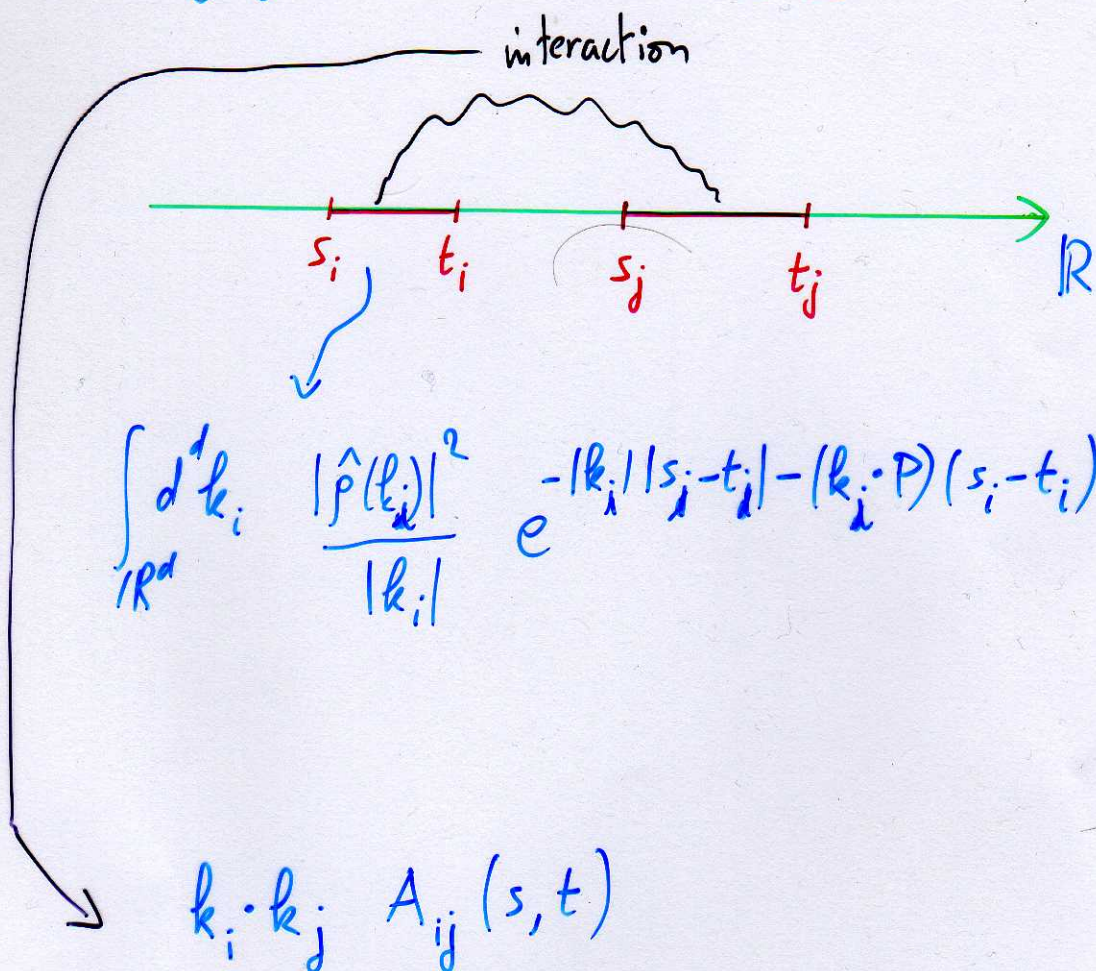 interaction
s_i t_i s_j t_j ℝ
∫_{ℝ^d} d^d k_i |ρ̂(k_i)|^2 / |k_i| e^{-|k_i||s_i-t_i|-(k_i·P)(s_i-t_i)}
k_i·k_j A_{ij}(s,t)